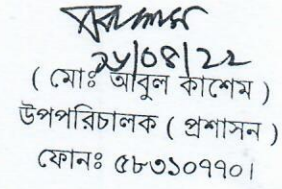 ২৮/০৪/২২
( মোঃ আবুল কাশেম )
উপপরিচালক ( প্রশাসন )
ফোনঃ ৫৮৩১০৭৭০।